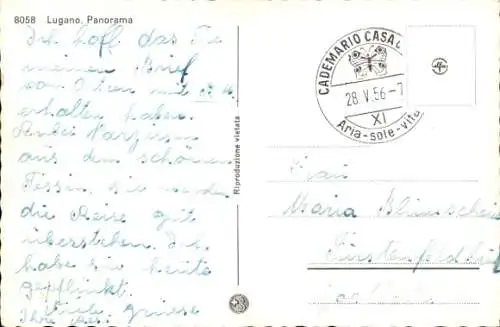 8058 Lugano. Panorama
Ich hoff. das Sie
meinen Brief
von Olten mit
erhalten haben.
Anbei Narzissen
aus dem schönen
Tessin, sie werden
die Reise gut
überstehen. Ich
habe sie heute
gepflückt.
Viele grüsse
Ihre
Riproduzione vietata
CADEMARIO CASA
28.V.56-7
XI
Aria-sole-vita
Frau
Maria